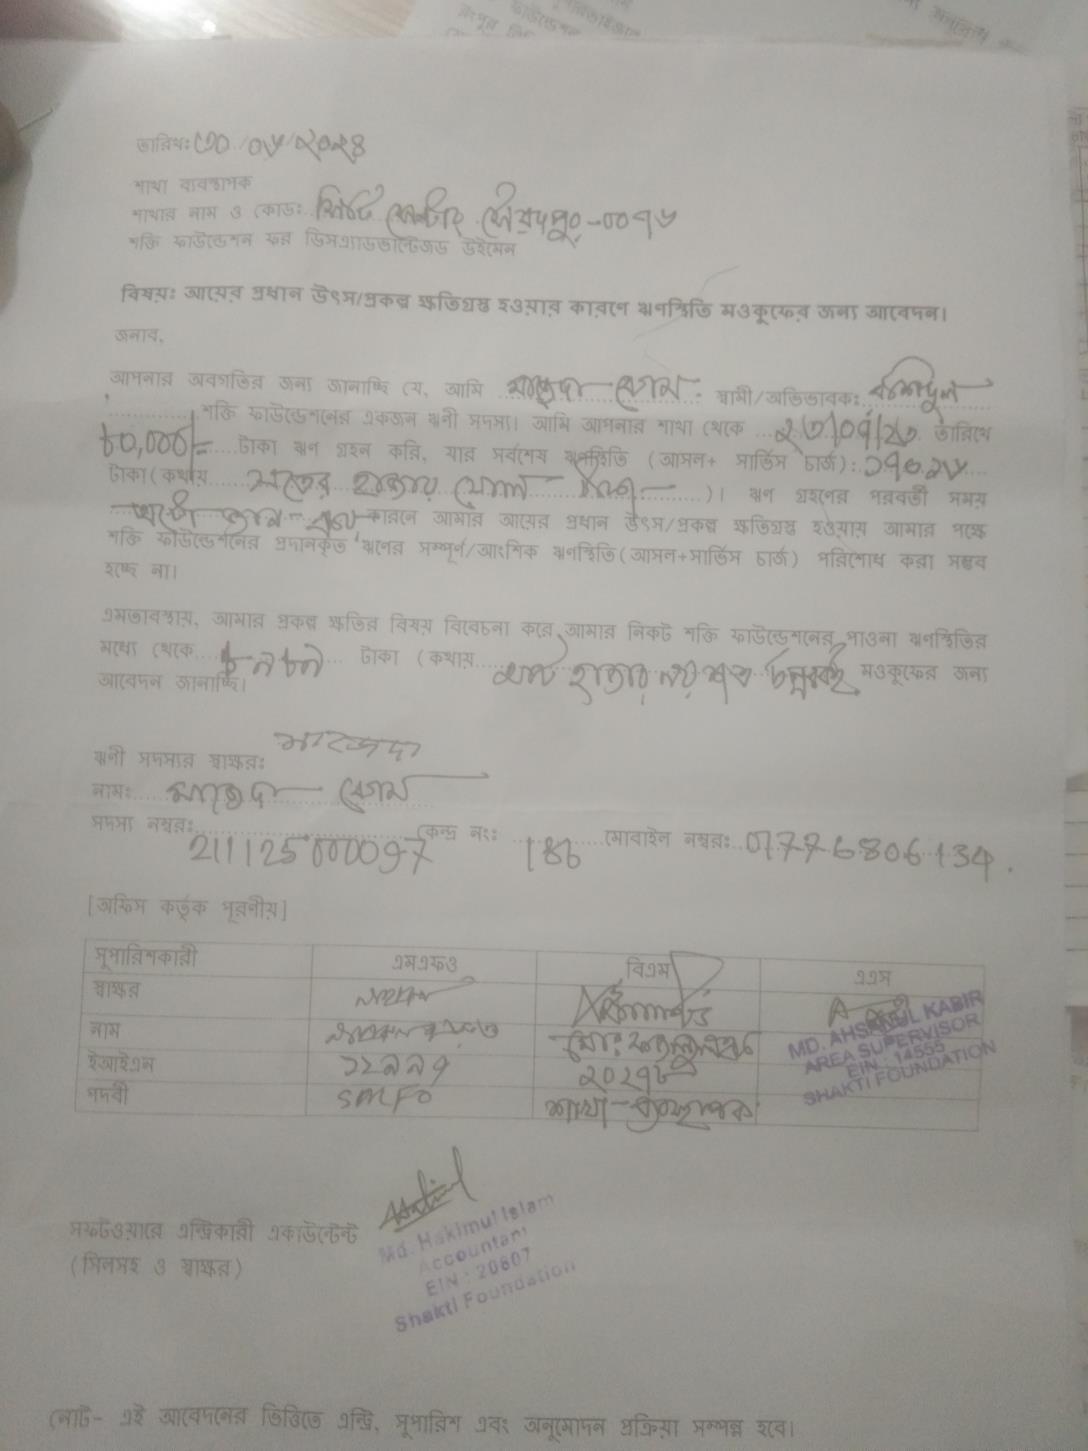 তারিখঃ ৩০/০৬/২০২৪
শাখা ব্যবস্থাপক
শাখার নাম ও কোডঃ সিটি সেন্টার সৈয়দপুর-০০৭৬
শক্তি ফাউন্ডেশন ফর ডিসএ্যাডভান্টেজড উইমেন
বিষয়ঃ আয়ের প্রধান উৎস/প্রকল্প ক্ষতিগ্রস্ত হওয়ার কারণে ঋণস্থিতি মওকুফের জন্য আবেদন।
জনাব,
আপনার অবগতির জন্য জানাচ্ছি যে, আমি মাজেদা বেগম স্বামী/অভিভাবকঃ রশিদুল
শক্তি ফাউন্ডেশনের একজন ঋণী সদস্য। আমি আপনার শাখা থেকে ২৩/০৭/২৩ তারিখে
৮০,০০০/= টাকা ঋণ গ্রহন করি, যার সর্বশেষ ঋণস্থিতি (আসল+ সার্ভিস চার্জ):
টাকা(কথায় সতের হাজার ষোল টাকা)। ঋণ গ্রহণের পরবর্তী সময়
কারনে আমার আয়ের প্রধান উৎস/প্রকল্প ক্ষতিগ্রস্ত হওয়ায় আমার পক্ষে
শক্তি ফাউন্ডেশনের প্রদানকৃত ঋণের সম্পূর্ণ/আংশিক ঋণস্থিতি(আসল+সার্ভিস চার্জ) পরিশোধ করা সম্ভব
হচ্ছে না।
এমতাবস্থায়, আমার প্রকল্প ক্ষতির বিষয় বিবেচনা করে আমার নিকট শক্তি ফাউন্ডেশনের পাওনা ঋণস্থিতির
মধ্যে থেকে টাকা (কথায় আট হাজার নয় শত মওকুফের জন্য
আবেদন জানাচ্ছি।
ঋণী সদস্যর স্বাক্ষরঃ মাজেদা
নামঃ মাজেদা বেগম
সদস্য নম্বরঃ 211125000097 কেন্দ্র নংঃ 186 মোবাইল নম্বরঃ 01776806134
[অফিস কর্তৃক পূরণীয়]
সুপারিশকারী এমএফও বিএম এএস
স্বাক্ষর
নাম MD. AHSANUL KABIR
AREA SUPERVISOR
ইআইএন ১১৯৯৭ ২০২৭৮ EIN : 14555
SHAKTI FOUNDATION
পদবী SMFO শাখা-ব্যবস্থাপক
সফটওয়ারে এন্ট্রিকারী একাউন্টেন্ট
(সিলসহ ও স্বাক্ষর)
Md. Hakimul Islam
Accountant
EIN : 20807
Shakti Foundation
নোট- এই আবেদনের ভিত্তিতে এন্ট্রি, সুপারিশ এবং অনুমোদন প্রক্রিয়া সম্পন্ন হবে।